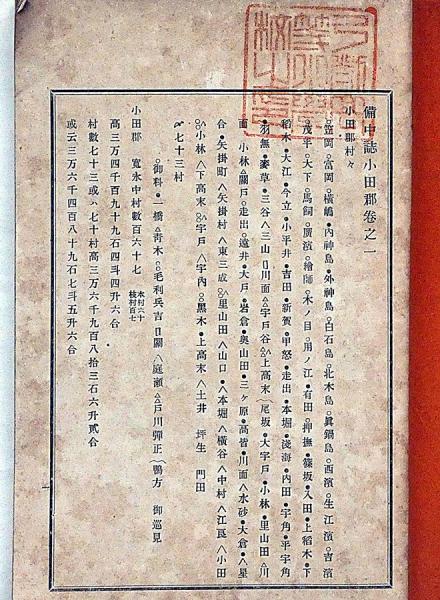 備中誌小田郡卷之一
小田郡村々
○笠岡○富岡○橫嶋●內神島○外神島○白石島○北木島○眞鍋島○西濱○生江濱○吉濱
○茂平○大下○馬飼○廣濱○繪師○木ノ目○用ノ江○有田○押撫●篠坂●入田●上稻木●下
稻木●大江●今立●小平井●吉田●新賀●甲怒●走出●本堀●淺海●內田●宇角●平宇角
●羽無●麥草●三谷ヘ三山日川面△宇戶谷 上高末 尾坂●大宇戶●小林●里山田△川
面 小林△關戶○走出○遠井○大戶●岩倉●奧山田●三ケ原●高皆●川面ヘ水砂●大倉●ヘ星
合●矢掛町ヘ矢掛村ヘ東三成 里山田ヘ山口●ヘ本堀ヘ橫谷ヘ中村ヘ江良ヘ小田
小林ヘ下高末 宇戶ヘ宇內○黑木●上高末ヘ土井 坪生 門田
七十三村
○御料●一橋△靑木○毛利兵吉日關ヘ庭瀨△戶川彈正 鴨方 御巡見
小田郡 寬永中村數六十七 本村六十 枝村百七
高三万四千百九十九石四斗四升六合
村數七十三或ハ七十村高三万六千九百八拾三石六升貳合
或云三万六千四百八十九石七斗五升六合
一